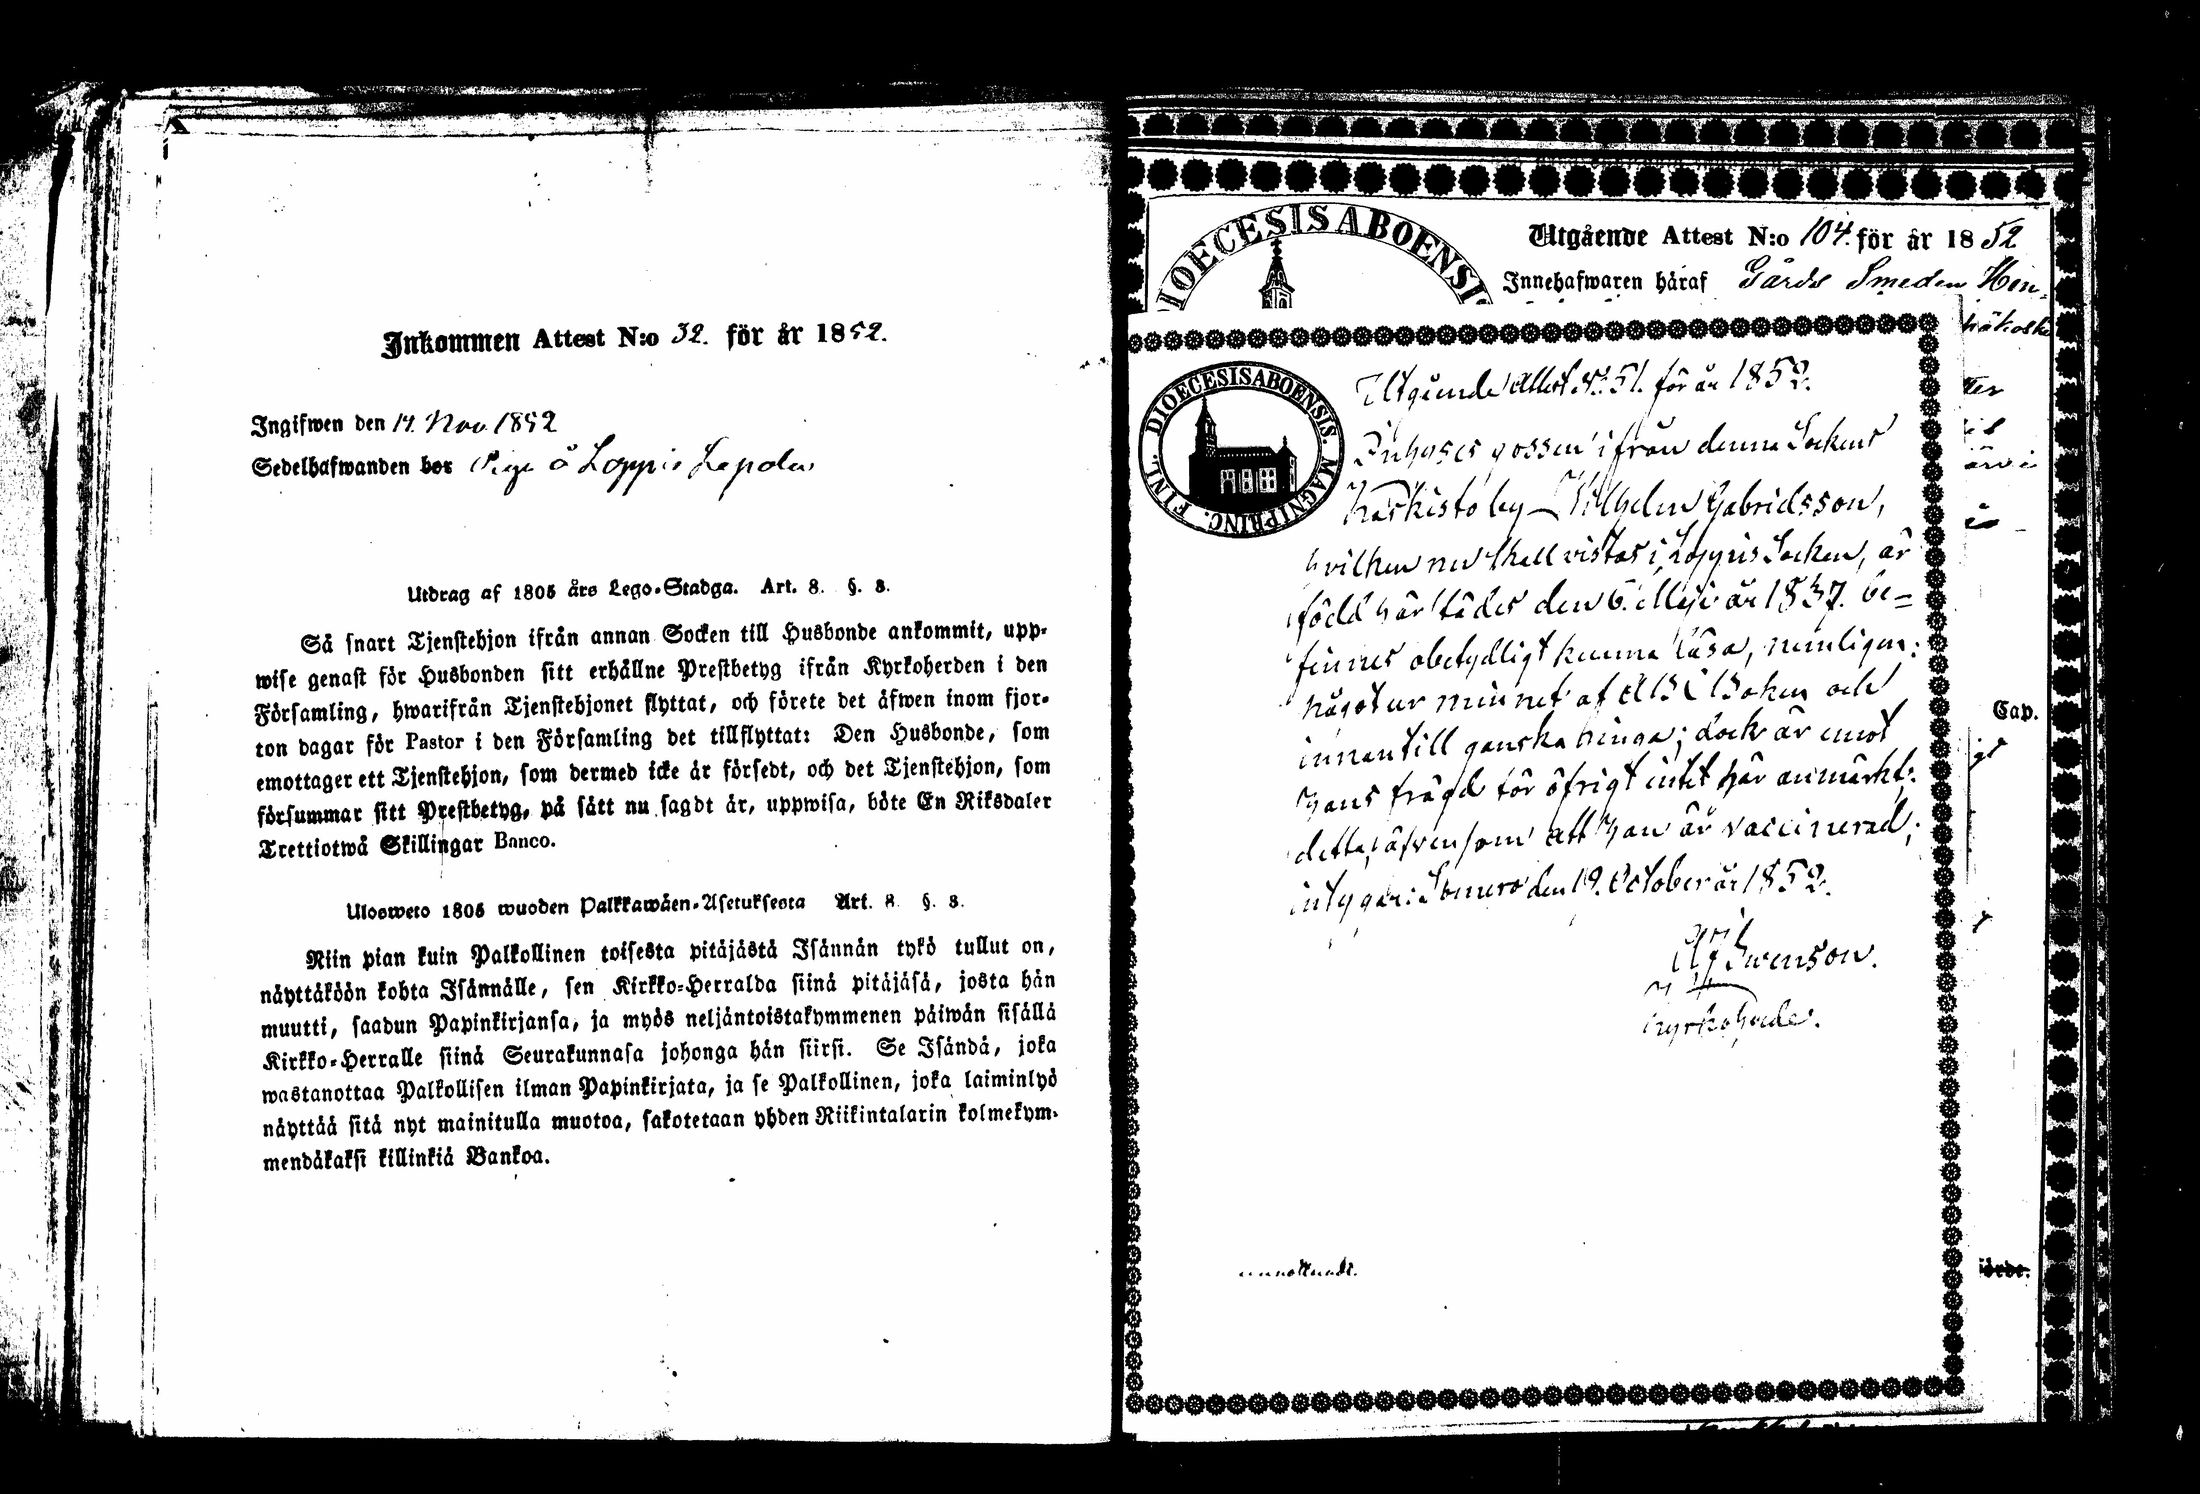 Inkommen Attest N:o 32. för år 1852.
Ingifwen den 14. Nov. 1852
Sedelhafwanden bor å Loppis
Utdrag af 1805 års Lego-Stadga. Art. 8. §. 8.
Så snart Tjenstehjon ifrån annan Socken till Husbonde ankommit, upp-
wise genast för Husbonden sitt erhållne Prestbetyg ifrån Kyrkoherden i den
Församling, hwarifrån Tjenstehjonet flyttat, och förete det åfwen inom fjor-
ton dagar för Pastor i den Församling det tillflyttat: Den Husbonde, som
emottager ett Tjenstehjon, som dermed icke år försedt, och det Tjenstehjon, som
försummar sitt Prestbetyg, på sått nu sagdt år, uppwisa, böte En Riksdaler
Trettiotwå Skillingar Banco.
Ulosweto 1805 wuoden Palkkawåen-Asetuksesta Art. 8. §. 8.
Niin pian kuin Palkollinen toisesta pitåjåstå Isånnån tykö tullut on,
nåyttåköön kohta Isånnålle, sen Kirkko-Herralda siinå pitåjåså, josta hån
muutti, saadun Papinkirjansa, ja myös neljåntoistakymmenen påiwån sisållå
Kirkko-Herralle siinå Seurakunnasa johonga hån siirsi. Se Isåndå, joka
wastanottaa Palkollisen ilman Papinkirjata, ja se Palkollinen, joka laiminlyö
nåyttåå sitå nyt mainitulla muotoa, sakotetaan yhden Riikintalarin kolmekym-
mendåkaksi killinkiå Bankoa.
DIOECESIS ABOENSIS
Utgående Attest N:o 104. för år 1852
Innehafwaren håraf Gårds Smeden Hen-
DIOECESIS ABOENSIS. MAGNI PRINC. FINL.
Utgående Attest N:o 51. för år 1852.
Inhyses gossen ifrån denna Sockens
by Wilhelm Gabrielsson,
hvilken nu skall vistas i Loppis Socken, är
född härstädes den 6. Maji år 1837. be-
finnes obetydligt kunna läsa, nemligen:
något ur minnet af ABC Boken och
innantill ganska ringa; dock är emot
hans frägd för öfrigt intet här anmärkt;
detta, äfvensom att han är vaccinerad,
intygar: Somero den 19. October år 1852.
Swenson.
Kyrkoherde.
Cap.